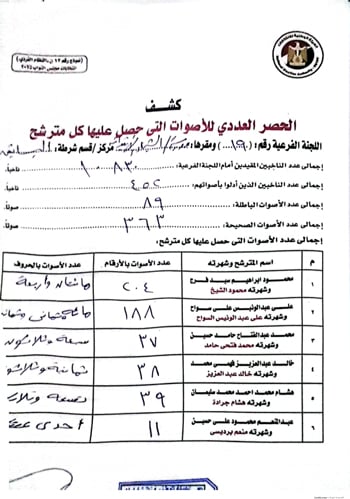 (نموذج رقم ١٢ ن.ب النظام الفردي)
انتخابات مجلس النواب ٢٠٢٥
الهيئة الوطنية للانتخابات
كشف
الحصر العددي للأصوات التى حصل عليها كل مترشح
اللجنة الفرعية رقم: ( ) ومقرها: مركز/ قسم شرطة:
إجمالى عدد الناخبين المقيدين أمام اللجنة الفرعية: ناخباً.
إجمالى عدد الناخبين الذين أدلوا بأصواتهم: ٤٥٢ ناخباً.
إجمالى عدد الأصوات الباطلة: ٨٩ صوتاً.
إجمالى عدد الأصوات الصحيحة: ٣٦٣ صوتاً.
إجمالى عدد الأصوات التى حصل عليها كل مترشح:
م اسم المترشح وشهرته عدد الأصوات بالأرقام عدد الأصوات بالحروف
١ محمود ابراهيم سيد فرج وشهرته محمود الشيخ ٢٠٤ مائتان وأربعة
٢ على عبد الونيس على سواح وشهرته على عبد الونيس السواح ١٨٨ مائة ثمانى وثمان
٣ محمد عبدالفتاح حامد حسن وشهرته محمد فتحى حامد ٣٧ سبعة وثلاثون
٤ خالد عبدالعزيز فهمى محمد وشهرته خالد عبدالعزيز ٣٨ ثمانية وثلاثو
٥ هشام محمد احمد محمد سليمان وشهرته هشام جرادة ٣٩ تسعة وثلاث
٦ عبدالمنعم محمود على حسين وشهرته منعم برديسى ١١ أحدى